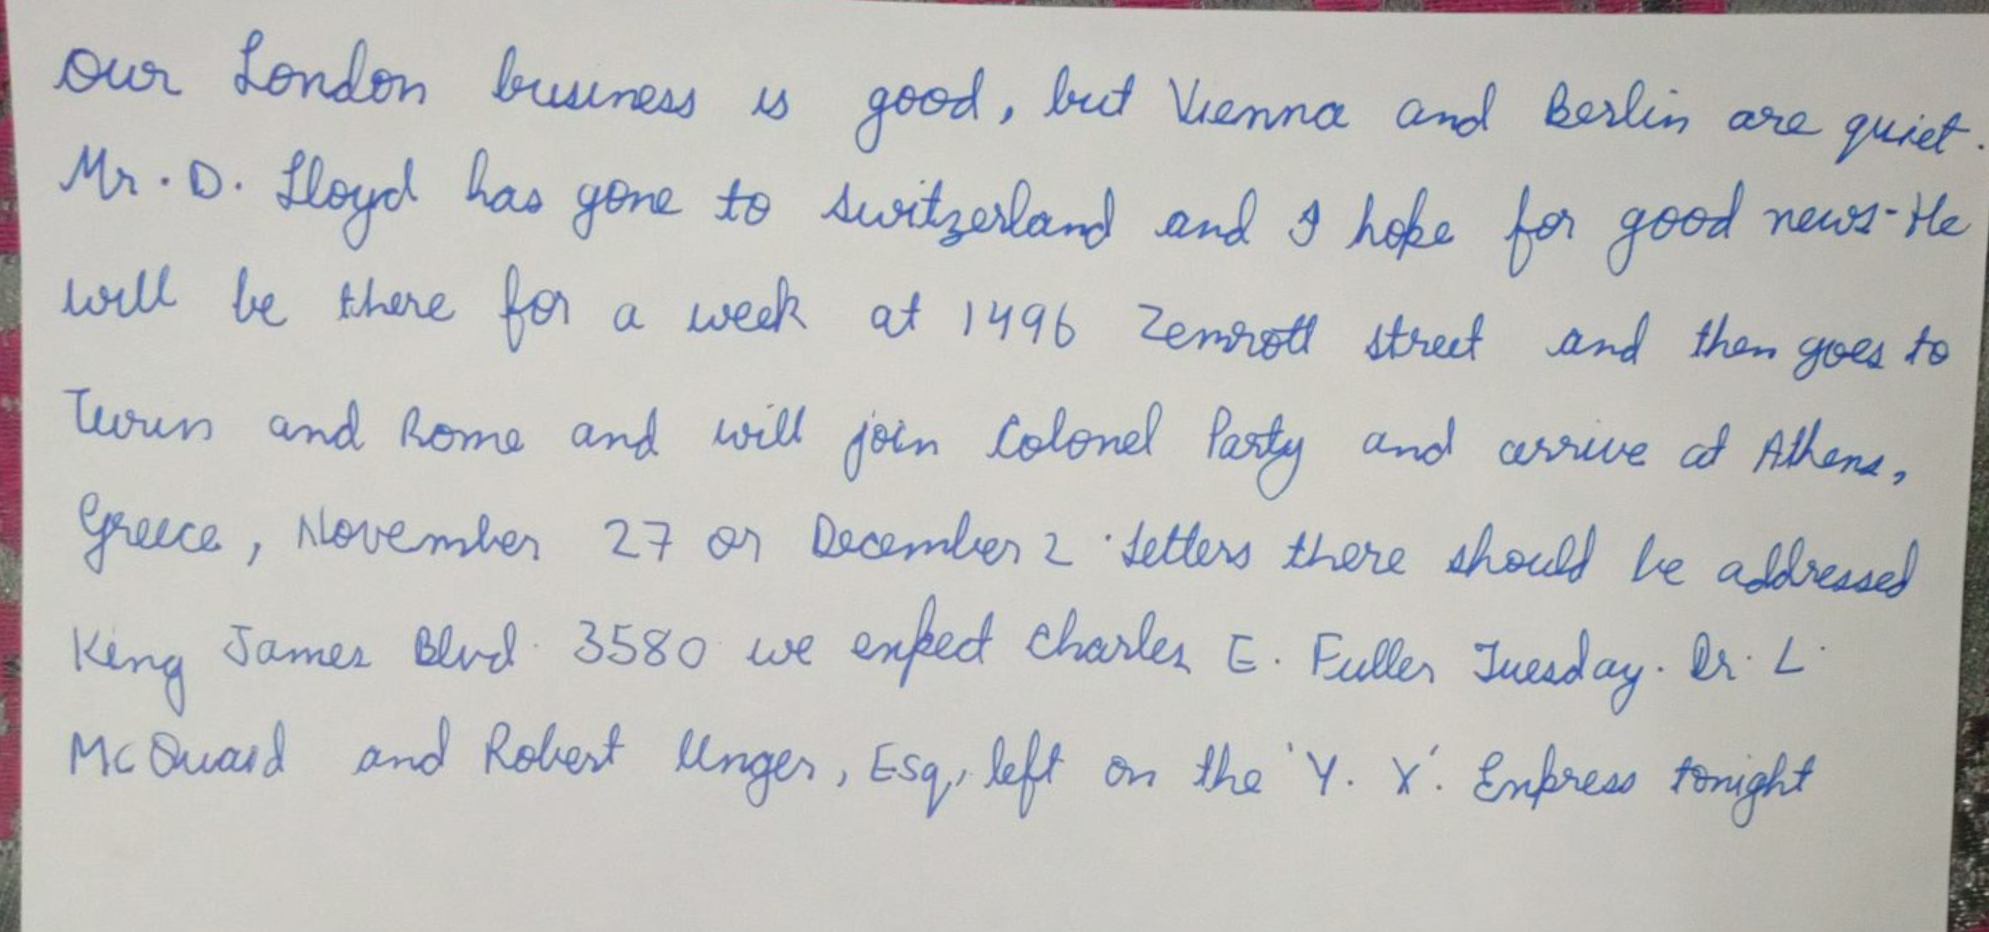 Our London business is good, but Vienna and Berlin are quiet.
Mr. D. Lloyd has gone to switzerland and I hope for good news-He
will be there for a week at 1496 Zemrott street and then goes to
Turin and Rome and will join Colonel Party and arrive at Athens,
Greece, November 27 or December 2. Letters there should be addressed
King James Blvd. 3580 we expect Charles E. Fuller Tuesday. Dr. L.
McQuaid and Robert Unger, Esq, left on the 'Y. X'. Express tonight